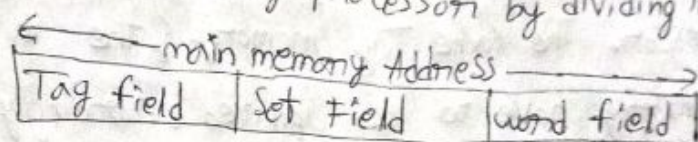 by dividing
main memory Address
Tag field Set Field word field